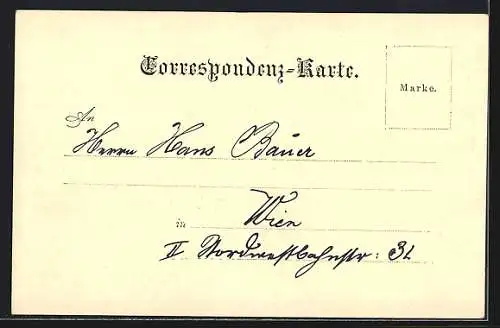 Correspondenz-Karte.
Marke.
An
Herrn Hans Bauer
in Wien
II Nordwestbahnstr: 31